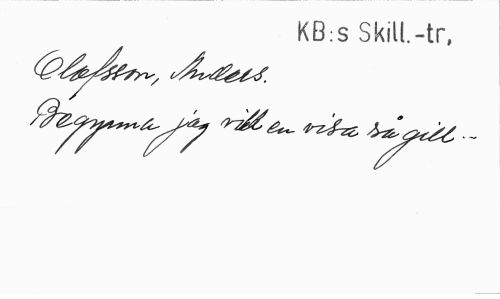 KB:s Skill.-tr,
Olofsson, Anders.
Begynna jag vill en visa så gill...